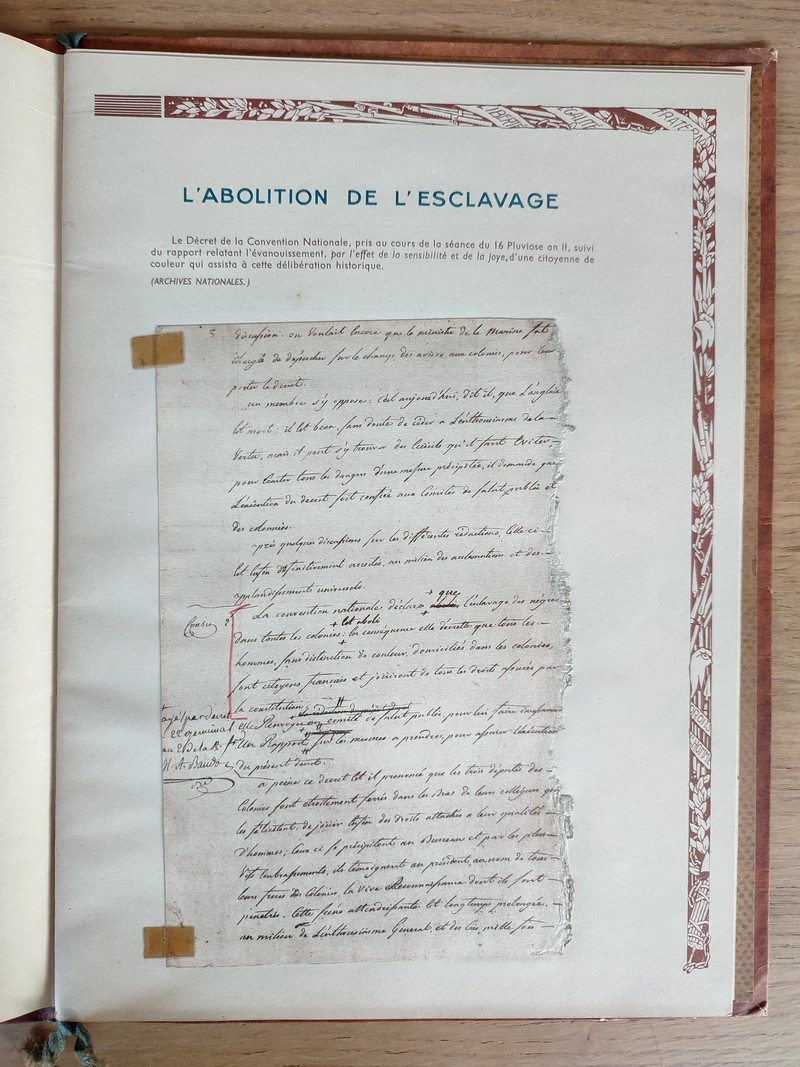 LIBERTÉ ÉGALITÉ FRATERNITÉ
L'ABOLITION DE L'ESCLAVAGE
Le Décret de la Convention Nationale, pris au cours de la séance du 16 Pluviose an II, suivi
du rapport relatant l'évanouissement, par l'effet de la sensibilité et de la joye, d'une citoyenne de
couleur qui assista à cette délibération historique.
(ARCHIVES NATIONALES.)
discussion. on Voulait Encore que le ministre de la Marine fut
chargé de dépêcher sur le champ des avisos aux colonies, pour leur
porter le decret.
un membre s'y oppose: c'est aujourd'hui, dit il, que L'anglais
Est mort; il Est beau, sans doute de céder a L'enthousiasme de la
Vertu, mais il peut s'y trouver des Ecueils qu'il faut Eviter,
pour Ecarter tous les dangers d'une mesure précipitée, il demande que
L'exécution du decret soit confiée aux Comités de Salut public et
des colonies.
après quelques discussions sur les différentes rédactions, Celle-ci
Est Enfin définitivement arretée, au milieu des acclamations et des
applaudissements universels.
La convention nationale déclare abolir que L'esclavage des nègres
dans toutes les colonies est aboli; En conséquence elle décrète que tous les
hommes, sans distinction de couleur, domiciliés dans les colonies,
sont citoyens français et jouiront de tous les droits assurés par
la constitution;
Elle Renvoye au comité de Salut public, pour lui faire incessamment
Un Rapport sur les mesures a prendre, pour assurer L'exécution
du présent decret.
rayé par decret
22 germinal
an 2 de la R. f.
M. A. Baudot
a peine ce decret Est il prononcé que les trois députés des
Colonies sont etroitement serrés dans les Bras de leurs collègues qui
les félicitent, de jouir Enfin des Droits attachés a leur qualité
D'hommes; Ceux ci se précipitent au Bureau et par les plus
Vifs Embrassements, ils temoignent au président, au nom de tous
leurs freres des Colonies, la Vive Reconnaissance dont ils sont
pénétrés. Cette scène attendrissante Est longtemps prolongée,
au milieu de L'enthousiasme Général et des cris, mille fois
DROITS DE L'HOMME